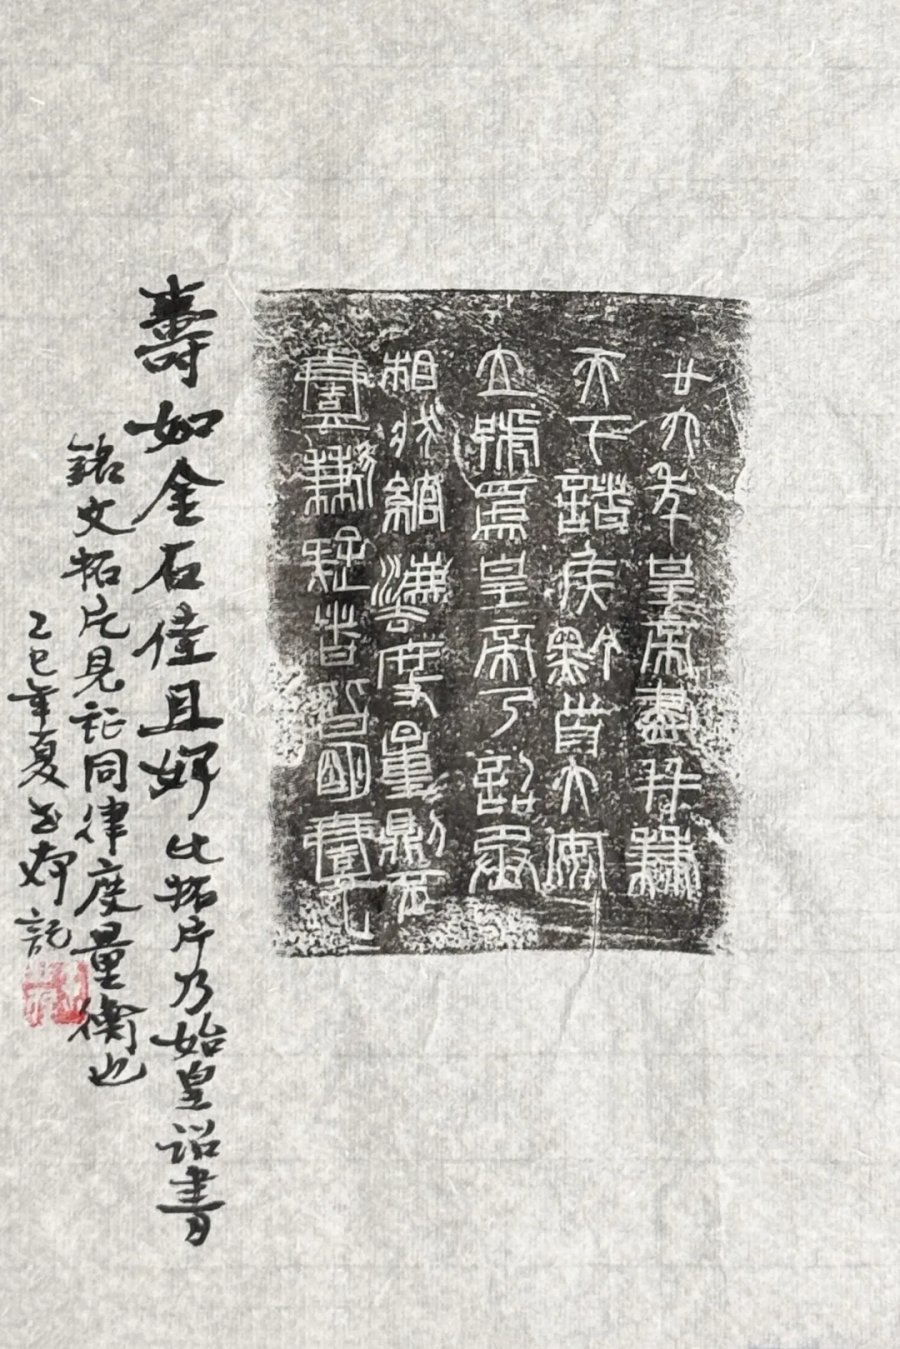 廿六年皇帝盡并兼
天下諸侯黔首大安
立號爲皇帝乃詔丞
相狀綰灋度量則不
壹歉疑者皆明壹之
壽如金石佳且好比拓片乃始皇詔書
銘文拓片見証同律度量衡也
乙巳年夏
記